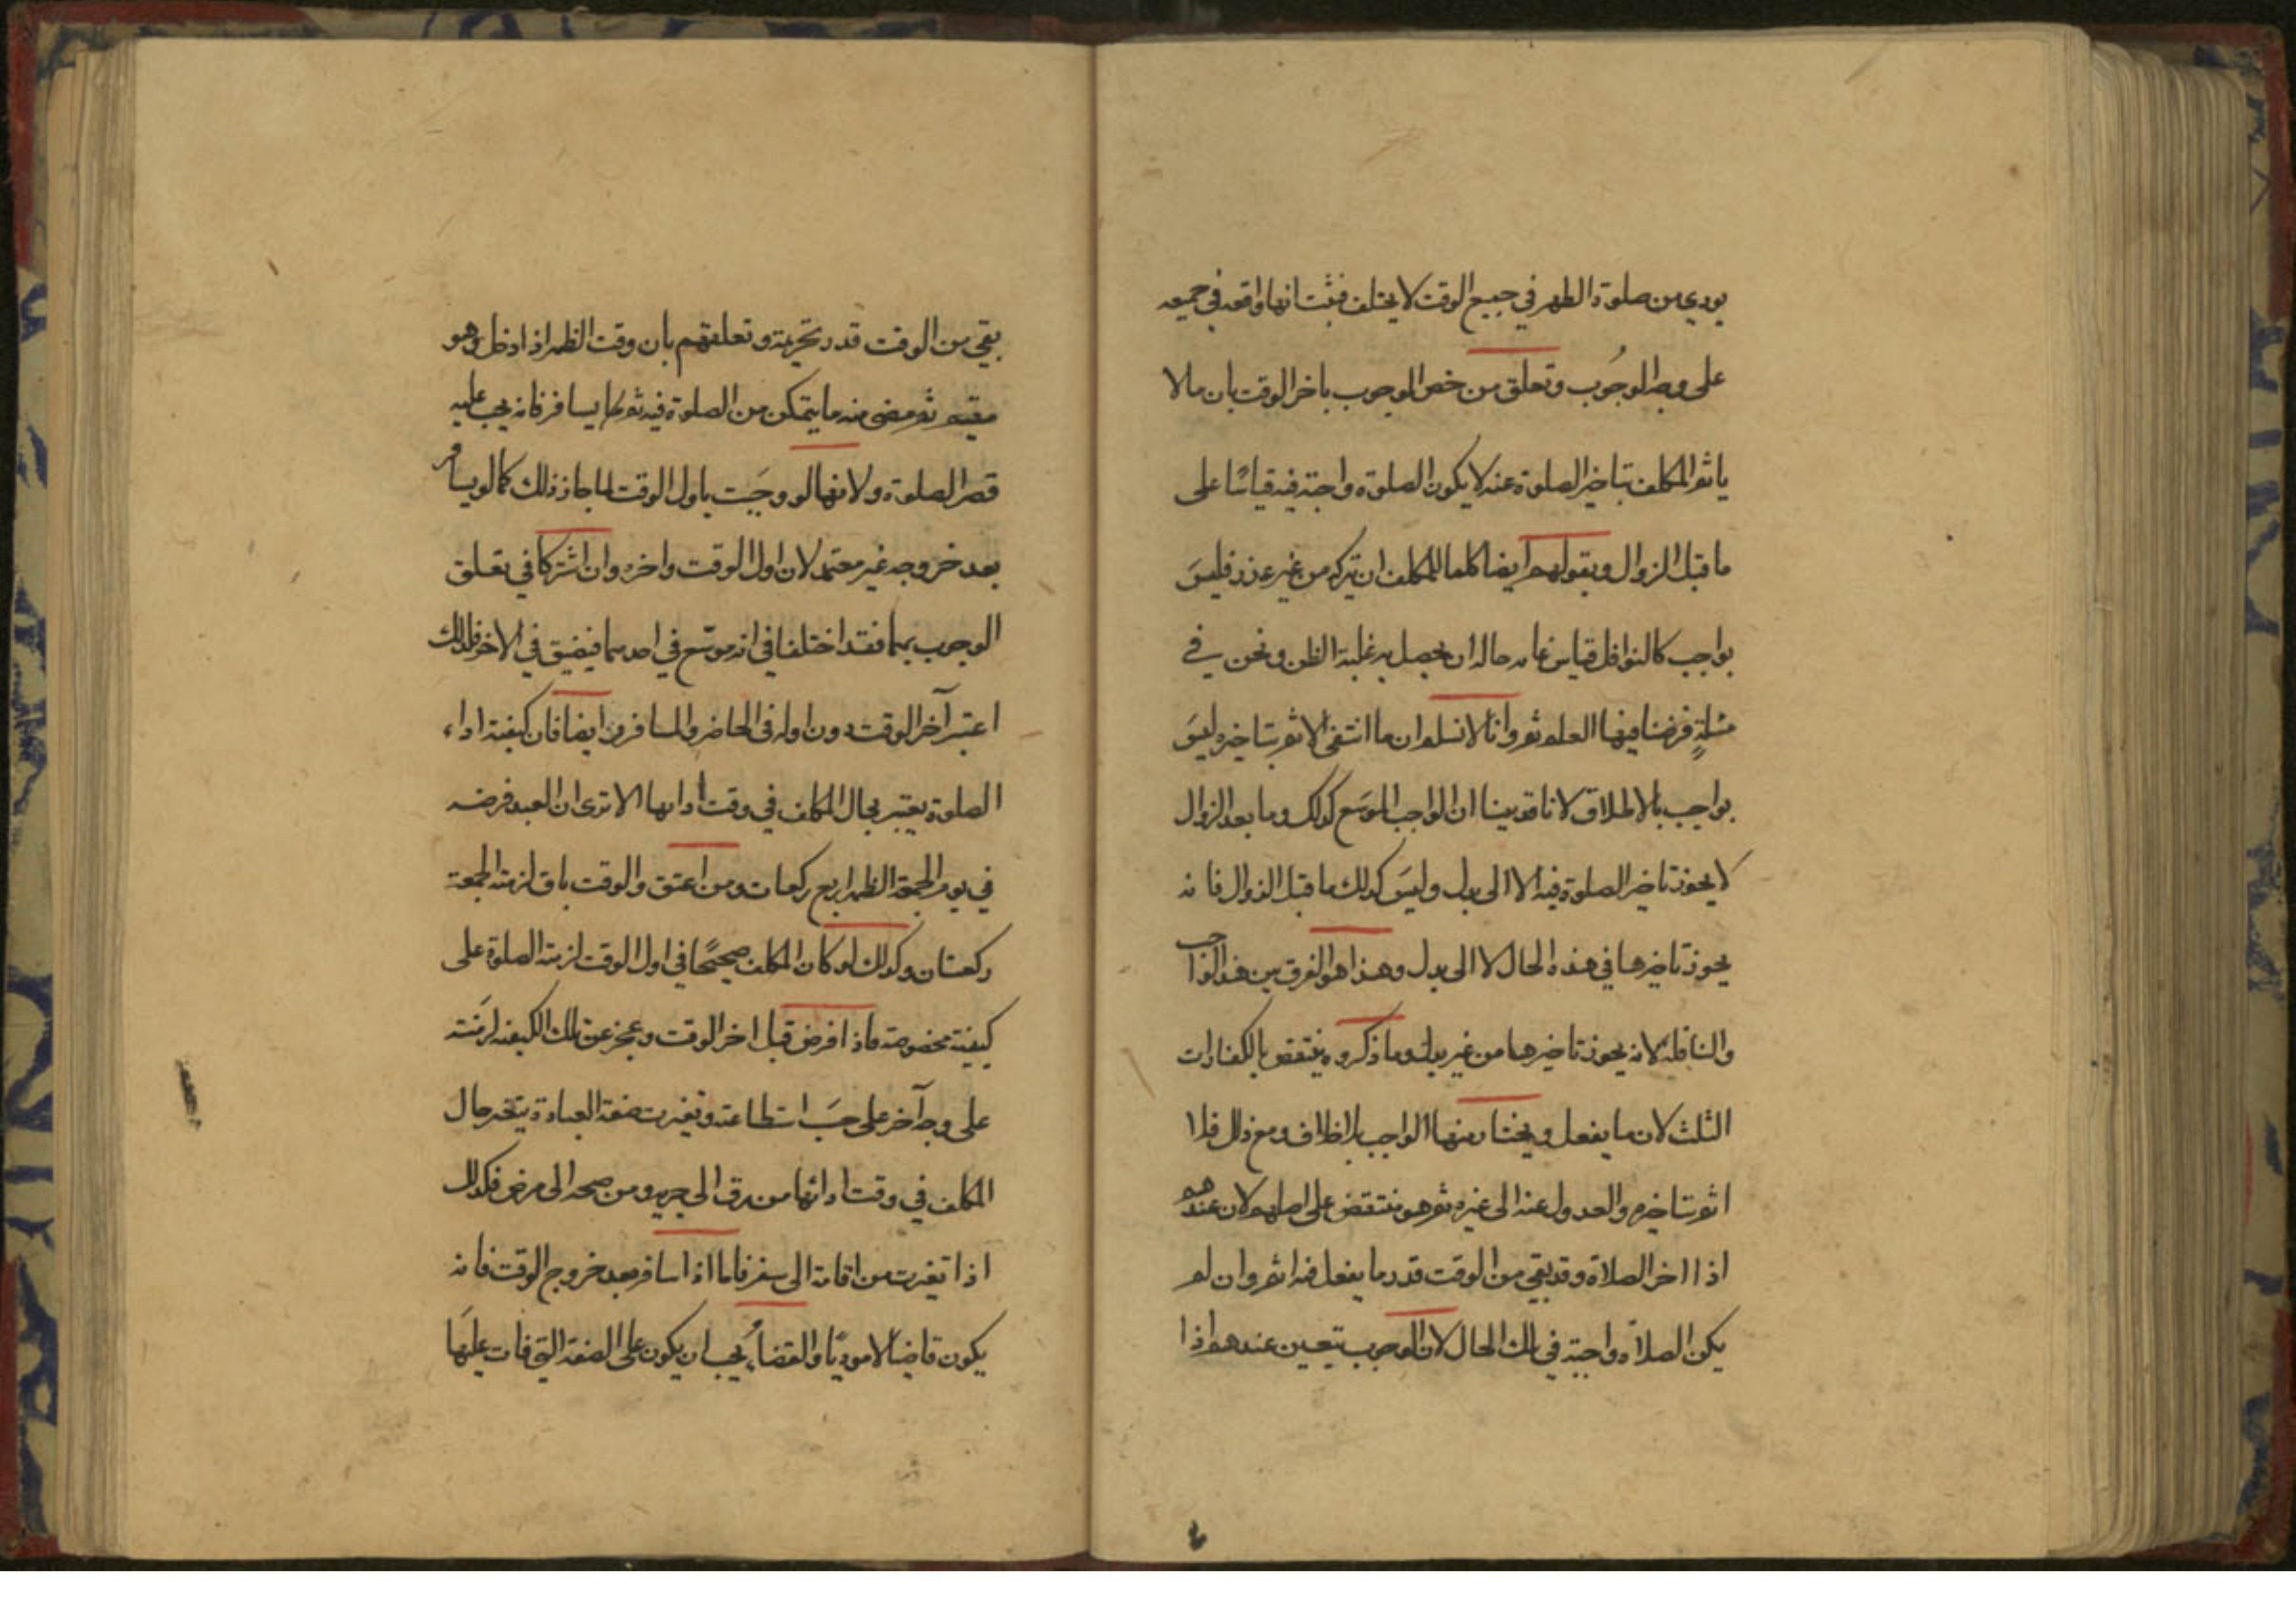 يودي من صلوة الظهر في جميع الوقت لا يختلف فثبت انها واقعه في جميعه
على وجه الوجُوب وتعلق من خص الوجوب باخر الوقت بان ما لا
ياثم المكلف بتاخير الصلوة عنه لا يكون الصلوة واجبة فيه قياسًا على
ما قبل الزوال وبقولهم ايضا كلما للمكلف ان يتركه من غير عذر فليسَ
بواجب كالنوافل قياس غايه حاله ان يحصل به غلبة الظن ونحن في
مسئلةٍ فرضنا فيها العلم ثم وانا لا نسلم ان ما انتفى الاثم بتاخيره ليسَ
بواجب بالاطلاق لانا قد بينا ان الواجب الموسَع كذلك وما بعد الزوال
لا يجوز تاخير الصلوة فيه الا الى بدل وليسَ كذلك ما قبل الزوال فانه
يجوز تاخيرها في هذه الحال لا الى بدل وهذا هو الفرق بين هذا الواجب
والنافلة لانه يجوز تاخيرها من غير بدل وما ذكروه ينتقض بالكفارات
الثلث لان ما يفعل ويختار منها الواجب بلا خلاف ومع ذلك فلا
اثم بتاخيره والعدول عنه الى غيره ثم هو منتقض على اصلهم لان عندهم
اذا اخر الصلاة وقد بقي من الوقت قدر ما يفعل فيه اثم وان لم
يكن الصلاة واجبة في تلك الحال لان الوجوب يتعين عندهم اذا
بقي من الوقت قدر تحريمة وتعلقهم بان وقت الظهر اذا دخل وهو
مقيم ثم مضى منه ما يتمكن من الصلوة فيه ثم يسافر فانه يجب عليه
قصر الصلوة ولانها لو وجَبت باول الوقت لما جاز ذلك كما لو يسافر
بعد خروجه غير معتمد لان اول الوقت واخره وان اشتركا في تعلق
الوجوب بهما فقد اختلفا في انه موسّع في احدهما فيضيق في الاخر فلذلك
اعتبر آخر الوقت دون اوله في الحاضر والمسافر وايضا فان كيفية اداء
الصلوة يعتبر بحال المكلف في وقت ادائها الا ترى ان العبد فرضه
في يوم الجمعة الظهر اربع ركعات ومن اعتق والوقت باق لزمته الجمعة
ركعتان وكذلك لو كان المكلف صحيحًا في اول الوقت لزمته الصلوة على
كيفية مخصوصة فاذا مرض قبل اخر الوقت وعجز عن تلك الكيفية لزمَته
على وجه آخر على حسَب استطاعته وتغيرت صفة العبادة بتغير حال
المكلف في وقت ادائها من رق الى حريه ومن صحه الى مرض فكذلك
اذا تغيرت من اقامة الى سفر فاما اذا سافر بعد خروج الوقت فانه
يكون قاضيًا لا موديًا والقضاءُ يجب ان يكون على الصفة التي فات عليهَا